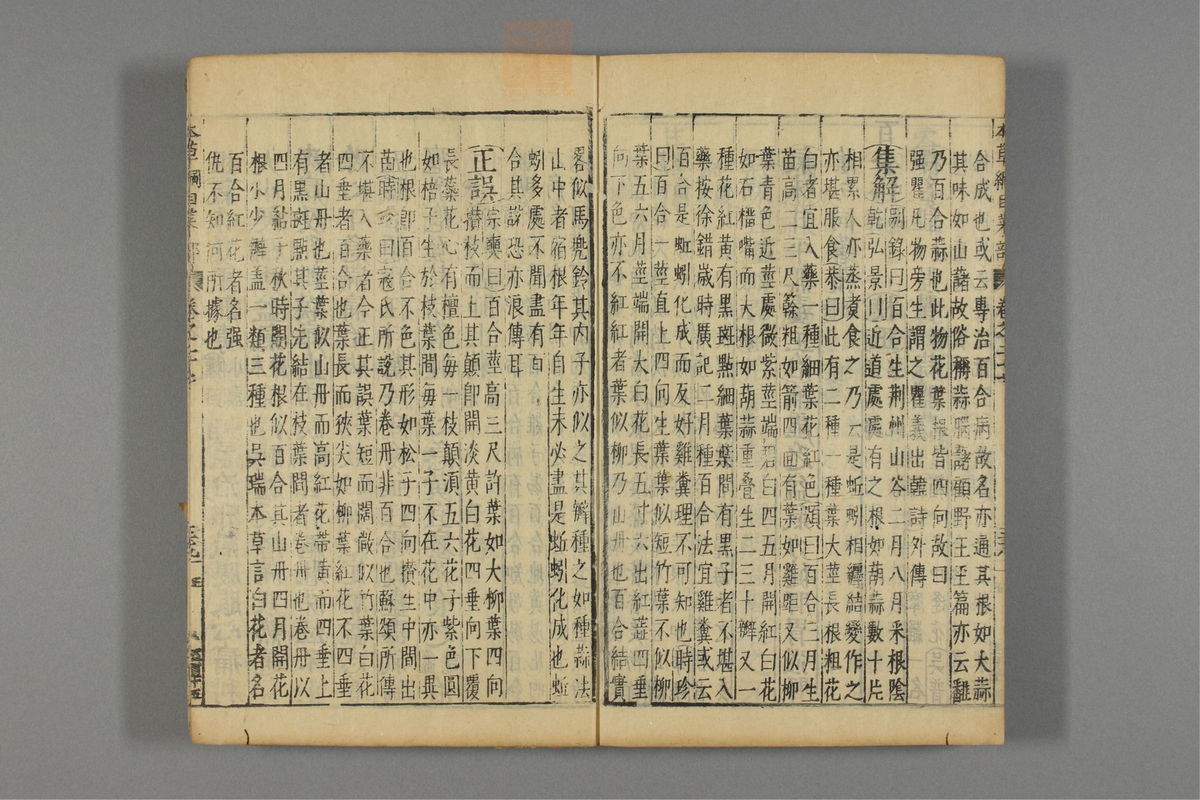 合成也或云專治百合病故名亦通其根如大蒜
其味如山藷故俗稱蒜腦藷顧野王玉篇亦云䪤
乃百合蒜也此物花葉根皆四向故曰
强瞿凡物旁生謂之瞿義出韓詩外傳
集解别錄曰百合生荆州山谷二月八月采根陰
乾弘景曰近道處處有之根如葫蒜數十片
相累人亦蒸煮食之乃云是蚯蚓相纏結變作之
亦堪服食恭曰此有二種一種葉大莖長根粗花
白者宜入藥一種細葉花紅色頌曰百合三月生
苗高二三尺簳粗如箭四面有葉如雞距又似柳
葉青色近莖處微紫莖端碧白四五月開紅白花
如石榴嘴而大根如葫蒜重疊生二三十瓣又一
種花紅黄有黑斑點細葉葉間有黑子者不堪入
藥按徐鍇歲時廣記二月種百合法宜雞糞或云
百合是蚯蚓化成而反好雞糞理不可知也時珍
曰百合一莖直上四向生葉葉似短竹葉不似柳
葉五六月莖端開大白花長五寸六出紅蕋四垂
向下色亦不紅紅者葉似柳乃山丹也百合結實
畧似馬兜鈴其内子亦似之其瓣種之如種蒜法
山中者宿根年年自生未必盡是蚯蚓化成也蚯
蚓多處不聞盡有百
合其說恐亦浪傳耳
正誤宗奭曰百合莖高三尺許葉如大柳葉四向
攅枝而上其顛卽開淡黄白花四垂向下覆
長蘂花心有檀色每一枝顛須五六花子紫色圓
如梧子生於枝葉間每葉一子不在花中亦一異
也根卽百合不色其形如松子四向攢生中間出
苗時珍曰寇氏所說乃卷丹非百合也蘇頌所傳
不堪入藥者今正其誤葉短而闊微似竹葉白花
四垂者百合也葉長而狹尖如柳葉紅花不四垂
者山丹也莖葉似山丹而高紅花帶黄而四垂上
有黑斑點其子先結在枝葉間者卷丹也卷丹以
四月結子秋時開花根似百合其山丹四月開花
根小少瓣蓋一類三種也吳瑞本草言白花者名
百合紅花者名强
仇不知何所據也